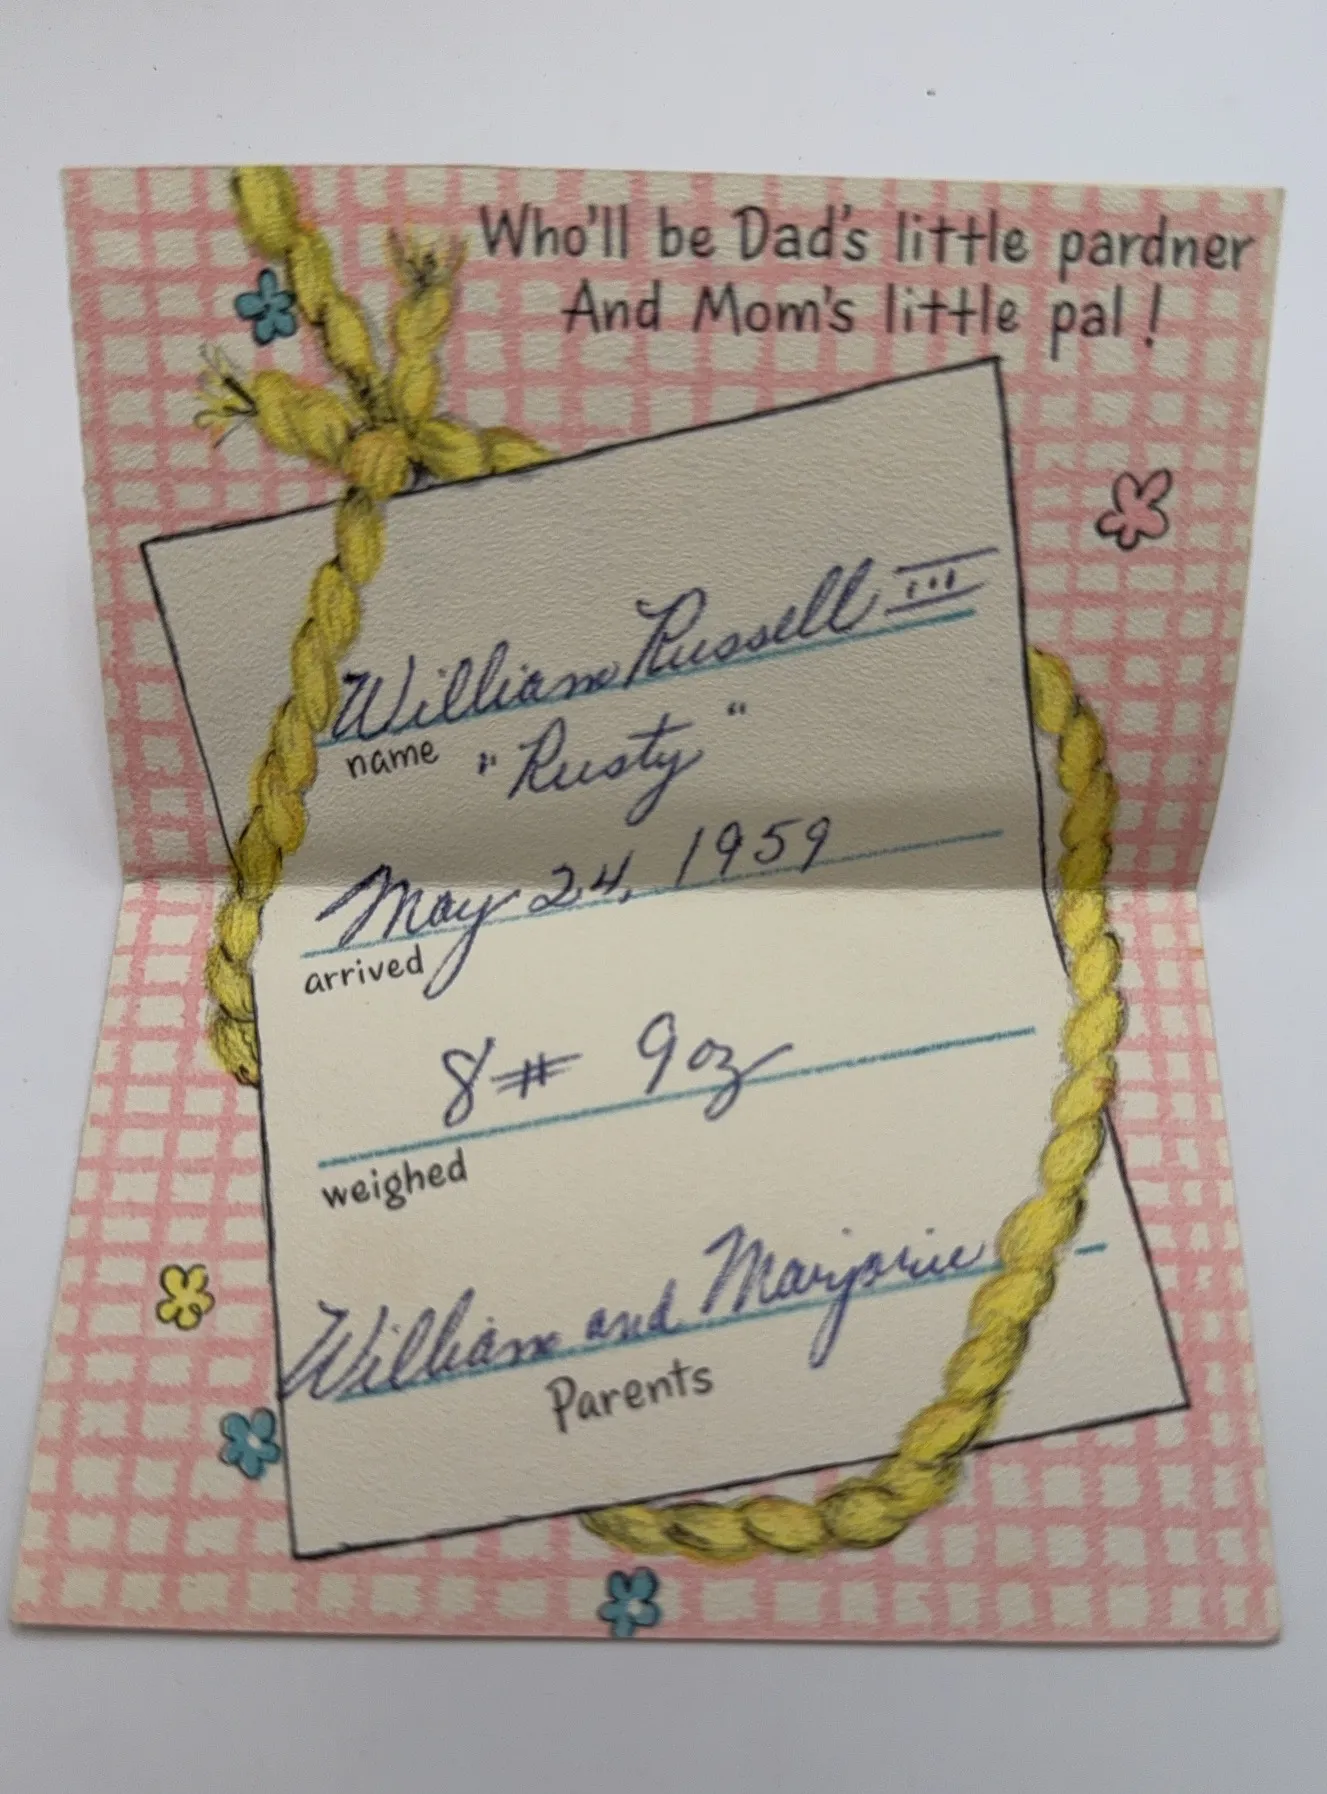 Who'll be Dad's little pardner
And Mom's little pal!
William Russell III
name "Rusty"
May 24, 1959
arrived
8# 9oz
weighed
William and Marjorie
Parents